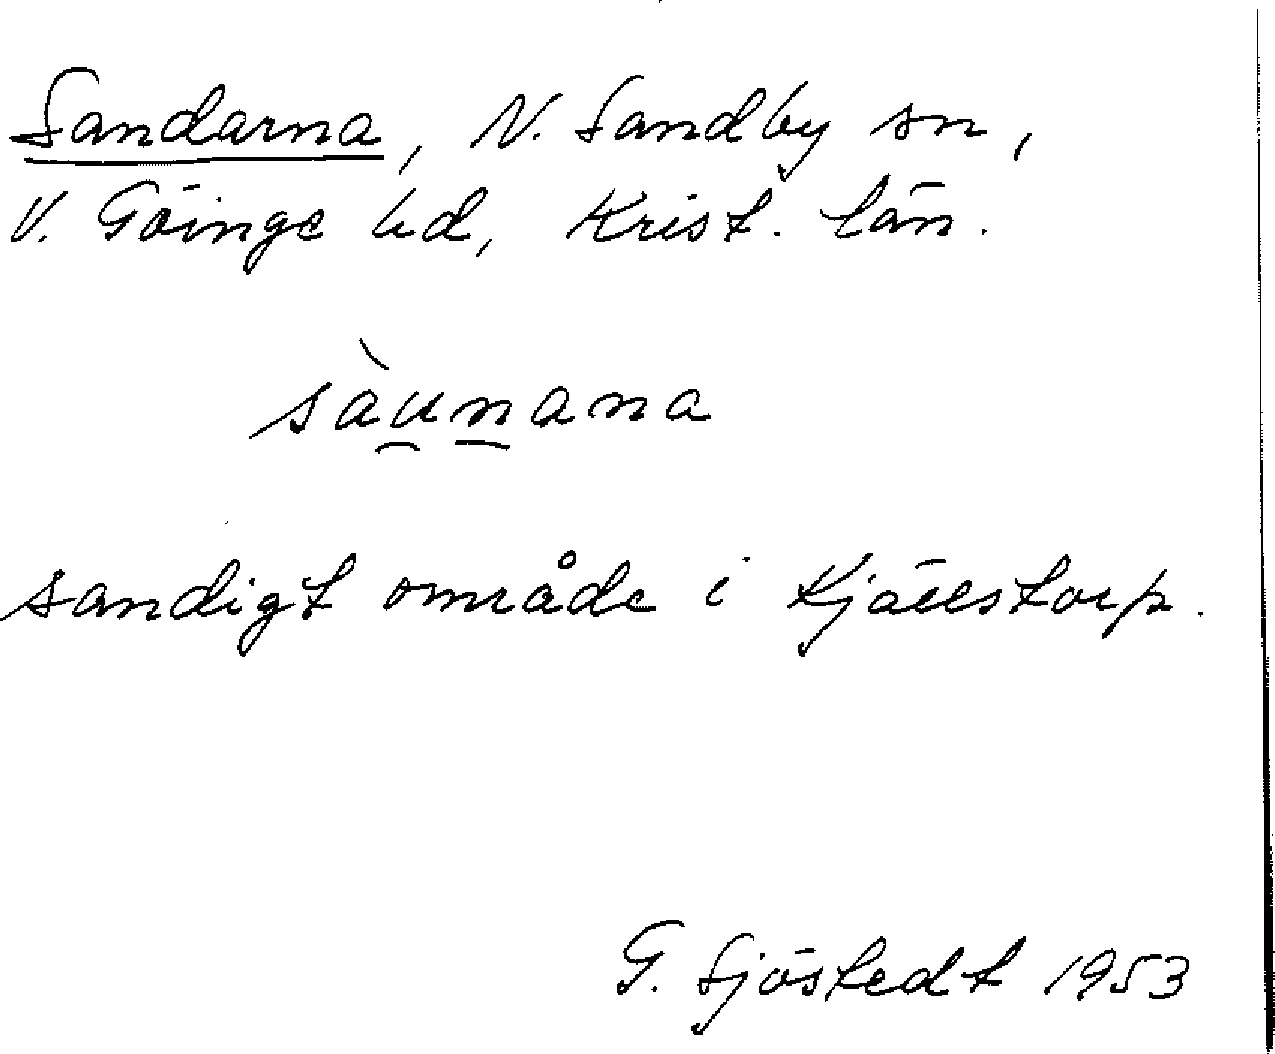 Sandarna, N. Sandby sn,
V. Göinge hd, Krist. län.
sàu̯n̲ana
sandigt område i Kjällstorp.
G. Sjöstedt 1953